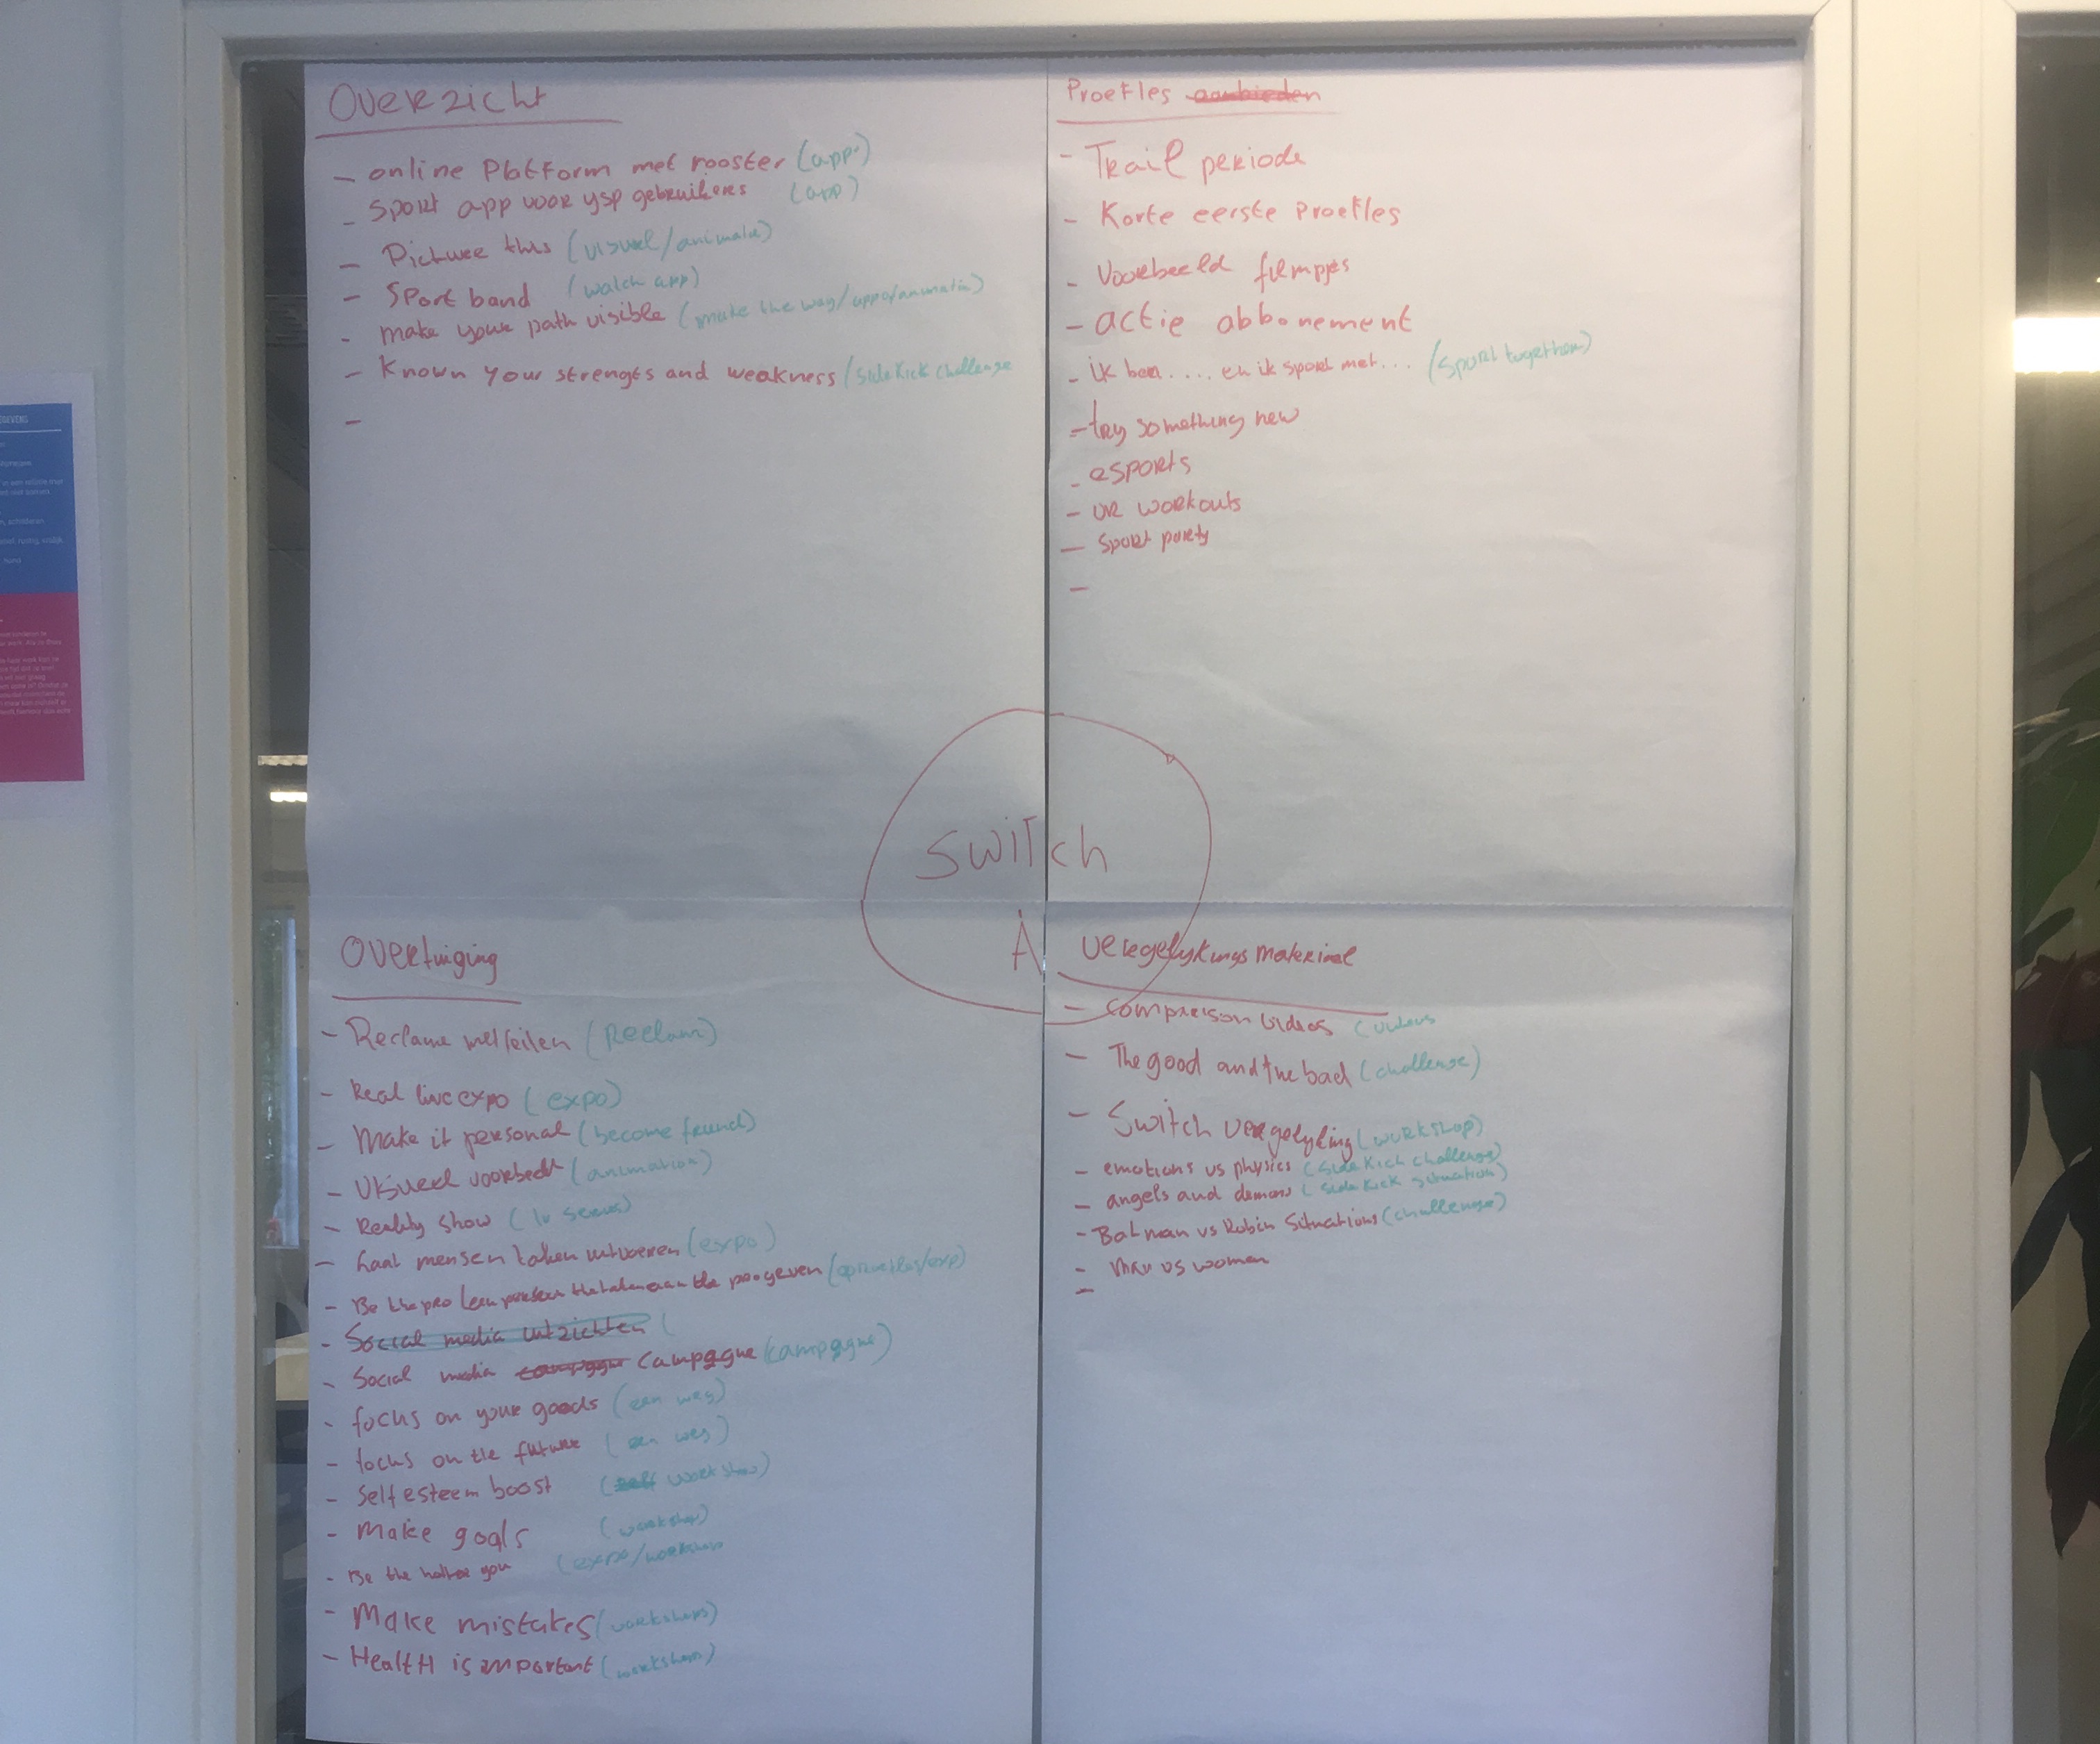 Overzicht
- online Platform met rooster (app)
- Sport app voor ysp gebruikers (app)
- Picture this (visueel/animatie)
- Sport band (watch app)
- make your path visible (make the way/
- Known your strengts and weakness/sidekick challenge
-
Proefles aanbieden
- Trail periode
- Korte eerste Proefles
- Voorbeeld filmpjes
- actie abbonement
- ik ben .... en ik sport met... (sport together)
- try something new
- esports
- VR workouts
- sport party
-
Switch
A
Overtuiging
- Reclame met feiten (Reclam)
- Real live expo (expo)
- Make it personal (become friend)
- Visueel voorbeelt (animation)
- Reality show (tv series)
- Laat mensen taken uitvoeren (expo)
- Be the pro
- Social media uitzichten (
- Social media campagne (campagne)
- focus on your goods (een weg)
- focus on the future (een weg)
- Self esteem boost (self workshop)
- Make goals (workshop)
- Be the you (expo/workshop
- Make mistakes (workshops)
- Health is important (workshops)
Veregelykings Materiaal
- comparison videos (videos
- The good and the bad (challenge)
- Switch vergelyking (workshop)
- emotions vs physics (sidekick challenge)
- angels and demons (sidekick situation)
- Batman vs Robin situations (challenge)
- Man vs women
-